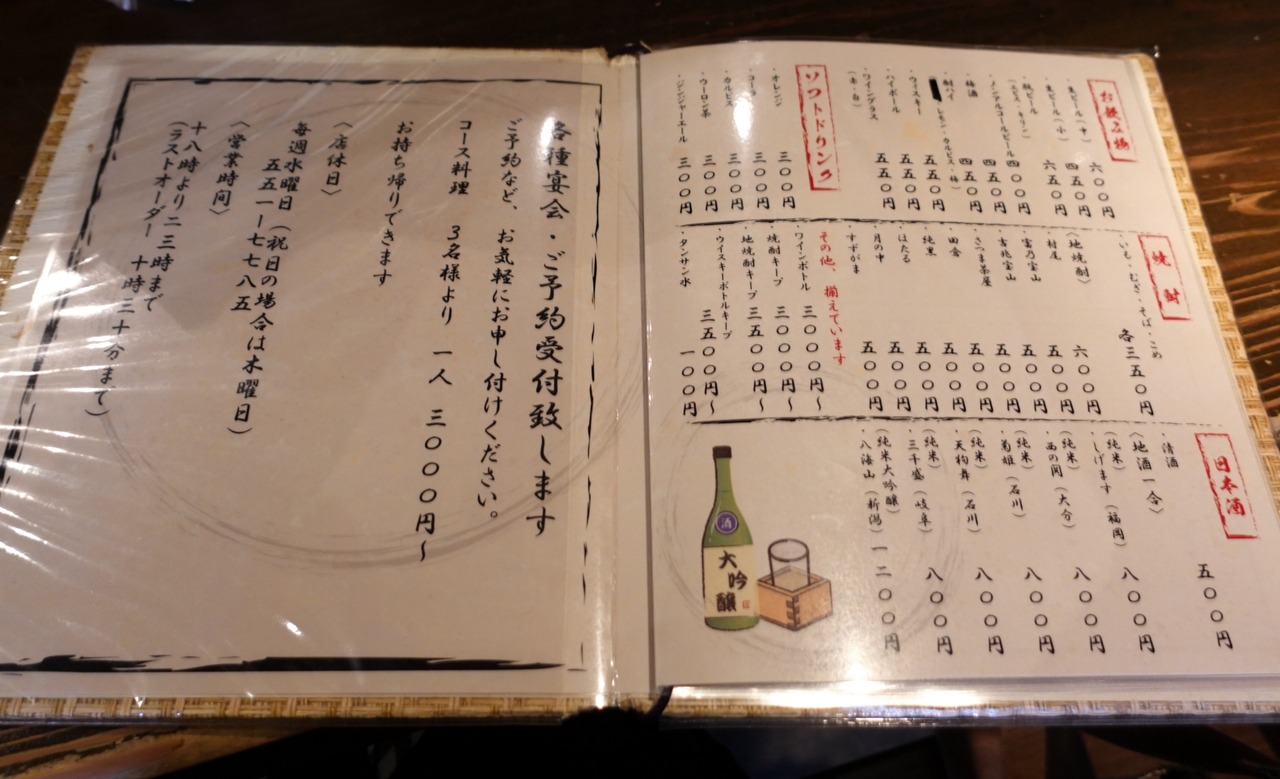 お飲み物
・生ビール(中) 六〇〇円
・生ビール(小) 四五〇円
・瓶ビール 六五〇円
(ヱビス・キリン)
・ノンアルコールビール 四〇〇円
・梅酒 四五〇円
・酎ハイ 四五〇円
(レモン・カルピス・柿)
・ウィスキー 五五〇円
・ハイボール 五五〇円
・ワイングラス 五五〇円
(赤・白)
ソフトドリンク
・オレンジ 三〇〇円
・コーラ 三〇〇円
・カルピス 三〇〇円
・ウーロン茶 三〇〇円
・ジンジャーエール 三〇〇円
焼酎
・いも・むぎ・そば・こめ
各三五〇円
〈地焼酎〉
・村尾 六〇〇円
・富乃宝山 五〇〇円
・吉兆宝山 五〇〇円
・さつま茶屋 五〇〇円
・田倉 五〇〇円
・純黒 五〇〇円
・ほたる 五〇〇円
・月の中 五〇〇円
・すずがま 五〇〇円
その他、揃えています
・ワインボトル 三〇〇〇円〜
・焼酎キープ 三〇〇〇円〜
・地焼酎キープ 三五〇〇円〜
・ウイスキーボトルキープ 三五〇〇円〜
・タンサン水 一〇〇円
日本酒
・清酒 五〇〇円
〈地酒一合〉
(純米)
・しげます(福岡) 八〇〇円
(純米)
・西の関(大分) 八〇〇円
(純米)
・菊姫(石川) 八〇〇円
(純米)
・天狗舞(石川) 八〇〇円
(純米)
・三千盛(岐阜) 八〇〇円
(純米大吟醸)
・八海山(新潟) 一二〇〇円
酒
大吟醸
各種宴会・ご予約受付致します
ご予約など、お気軽にお申し付けください。
コース料理 3名様より 一人 三〇〇〇円〜
お持ち帰りできます
〈店休日〉
毎週水曜日(祝日の場合は木曜日)
五五一ー七七八五
〈営業時間〉
十八時より二三時まで
(ラストオーダー 十時三十分まで)